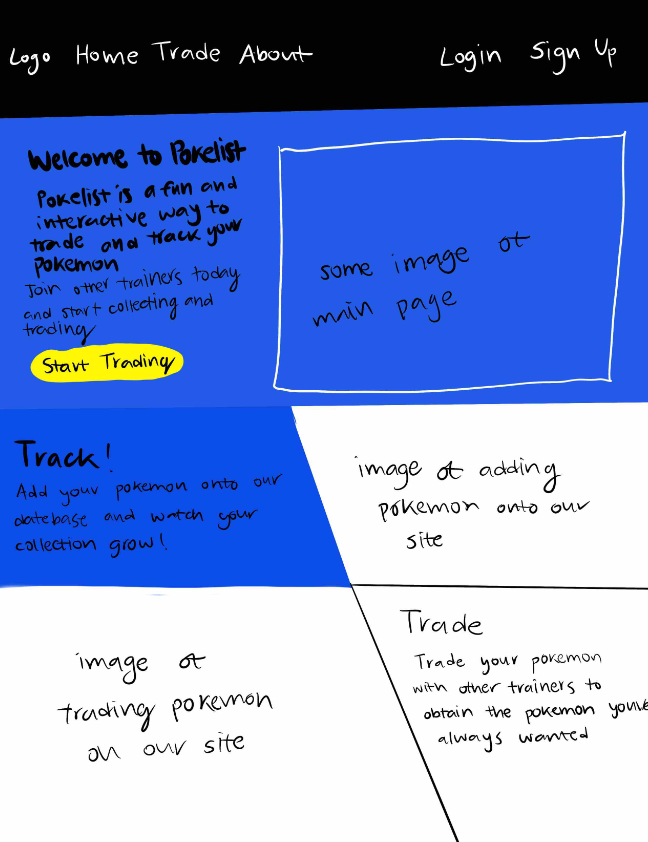 Logo Home Trade About Login Sign Up
Welcome to Pokelist
Pokelist is a fun and
interactive way to
trade and track your
Pokemon
Join other trainers today
and start collecting and
trading
Start Trading
some image of
main page
Track!
Add your pokemon onto our
datebase and watch your
collection grow!
image of adding
pokemon onto our
site
image of
trading pokemon
on our site
Trade
Trade your pokemon
with other trainers to
obtain the pokemon youve
always wanted